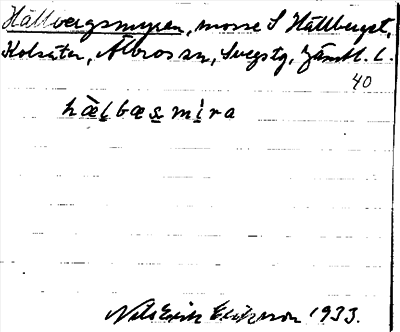 Hällbergsmyren, mosse S Hällbergst,
Kolsäter, Älvros sn, Svegs tg, Jämtl. l.
40
hæ̀lbæsmìra
Nils Erik Eriksson 1933.